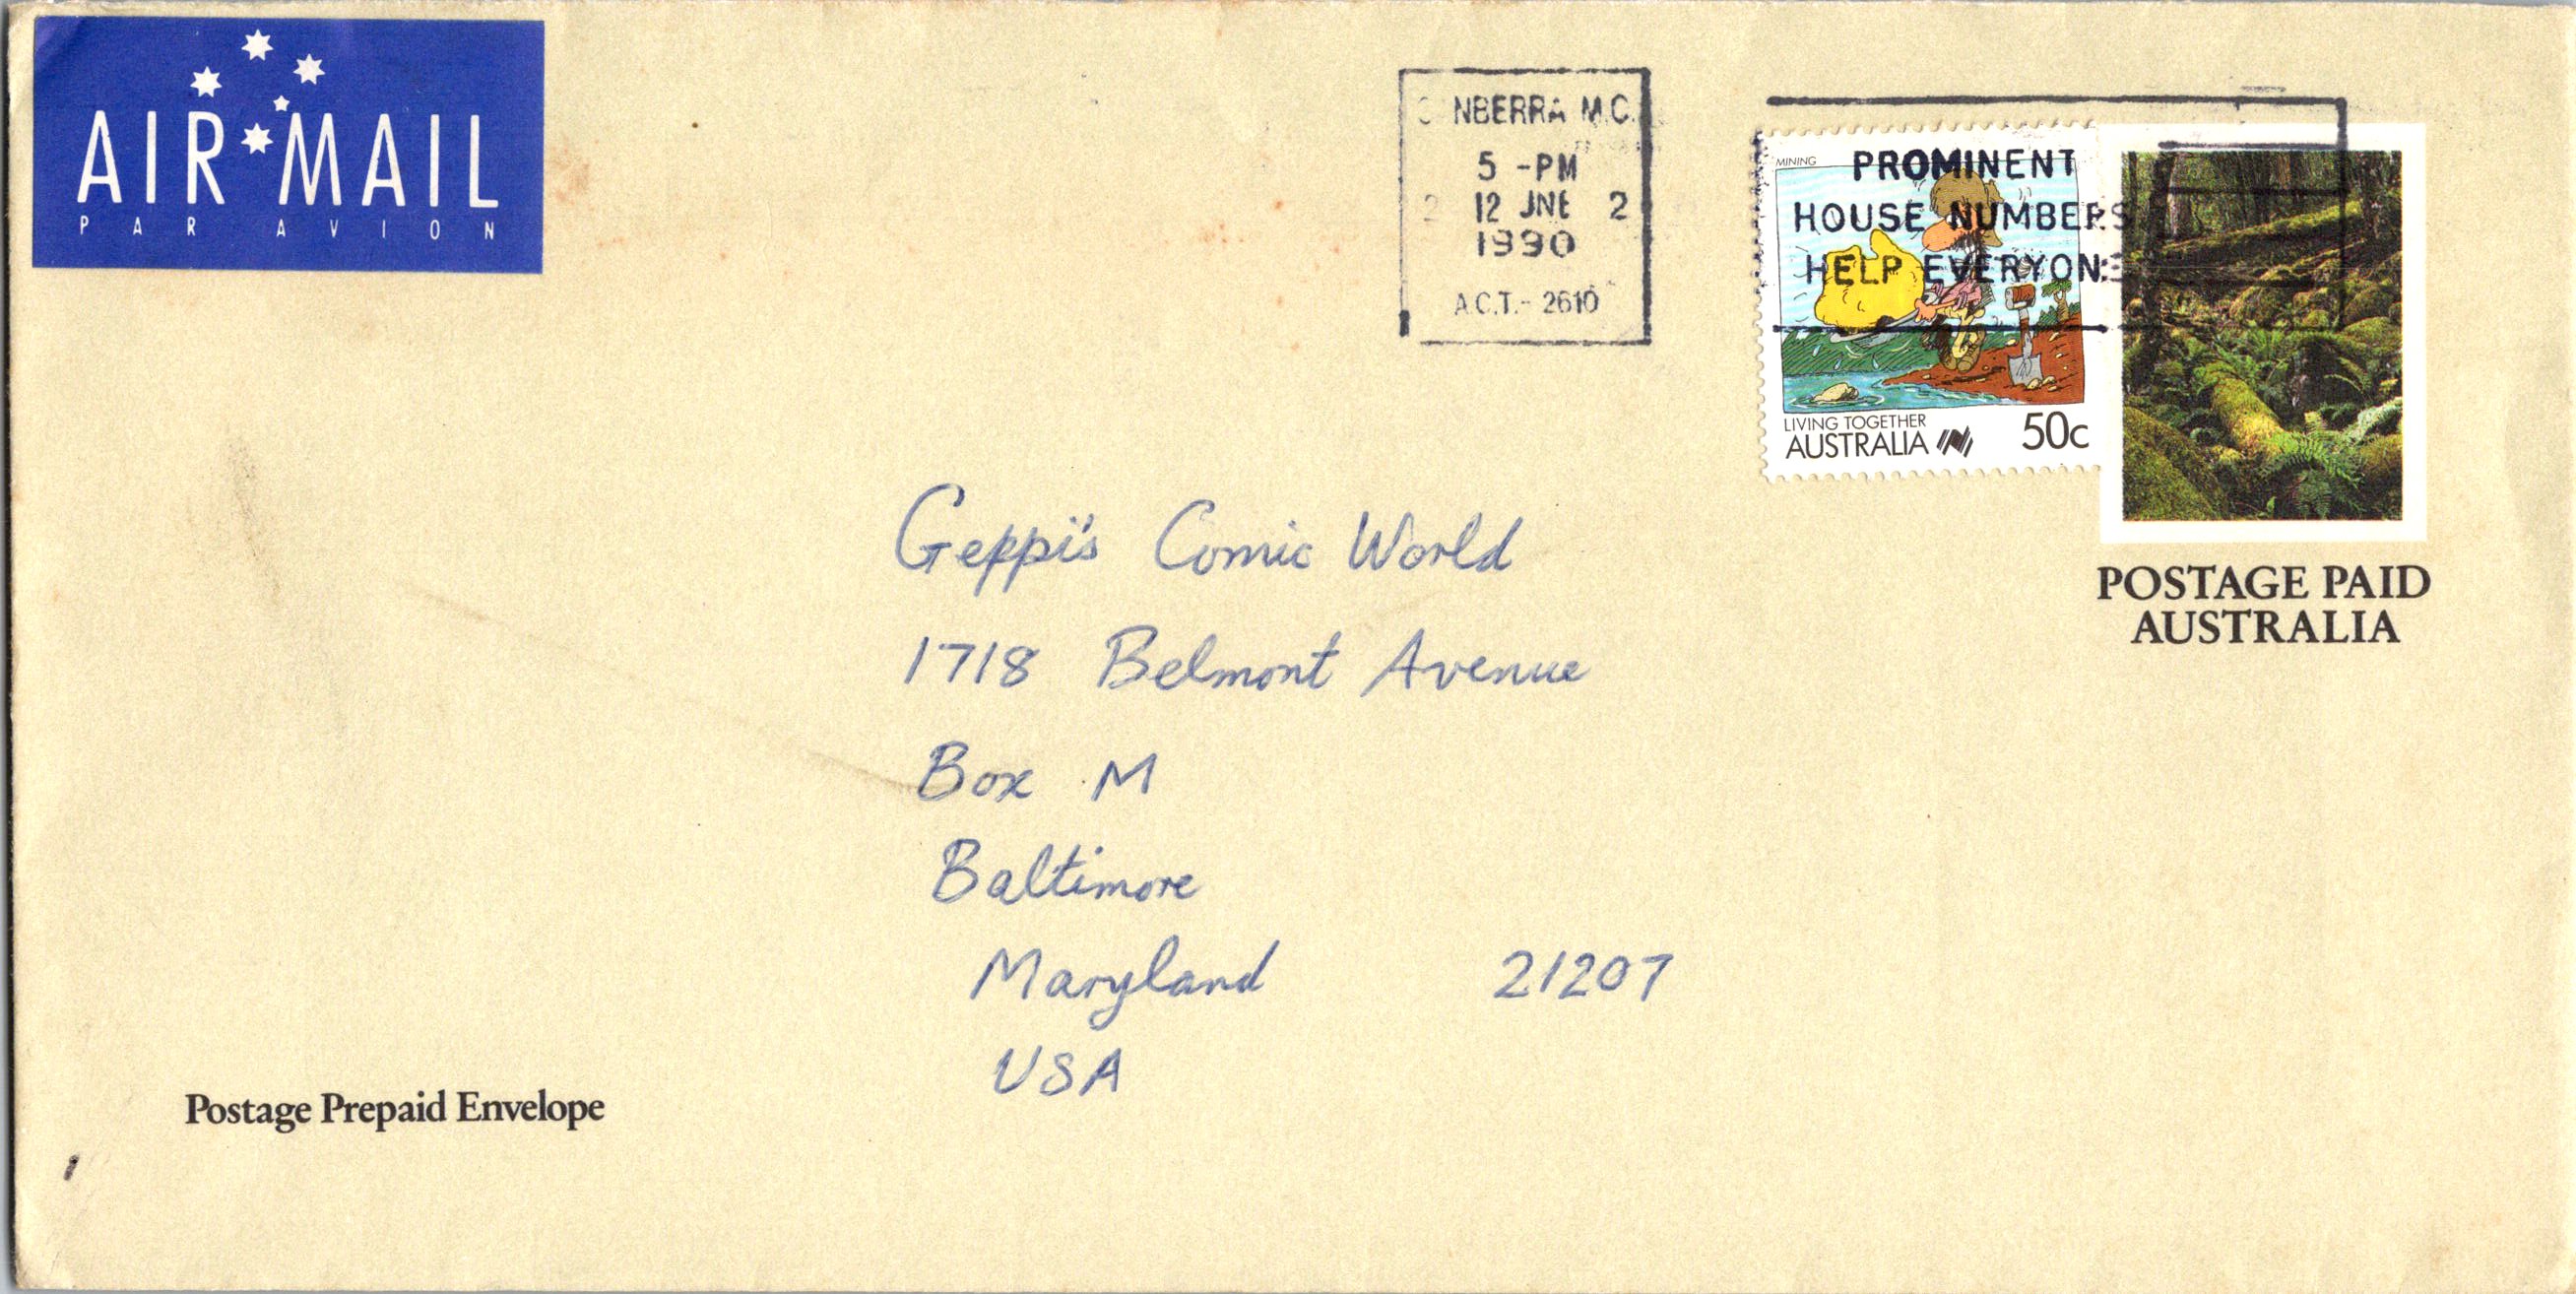 AIR MAIL
PAR AVION
NBERRA M.C.
5 -PM
2 12 JNE 2
1990
A.C.T.- 2610
MINING
PROMINENT
HOUSE NUMBERS
HELP EVERYONE
LIVING TOGETHER
AUSTRALIA 50c
POSTAGE PAID
AUSTRALIA
Geppi's Comic World
1718 Belmont Avenue
Box M
Baltimore
Maryland 21207
USA
Postage Prepaid Envelope